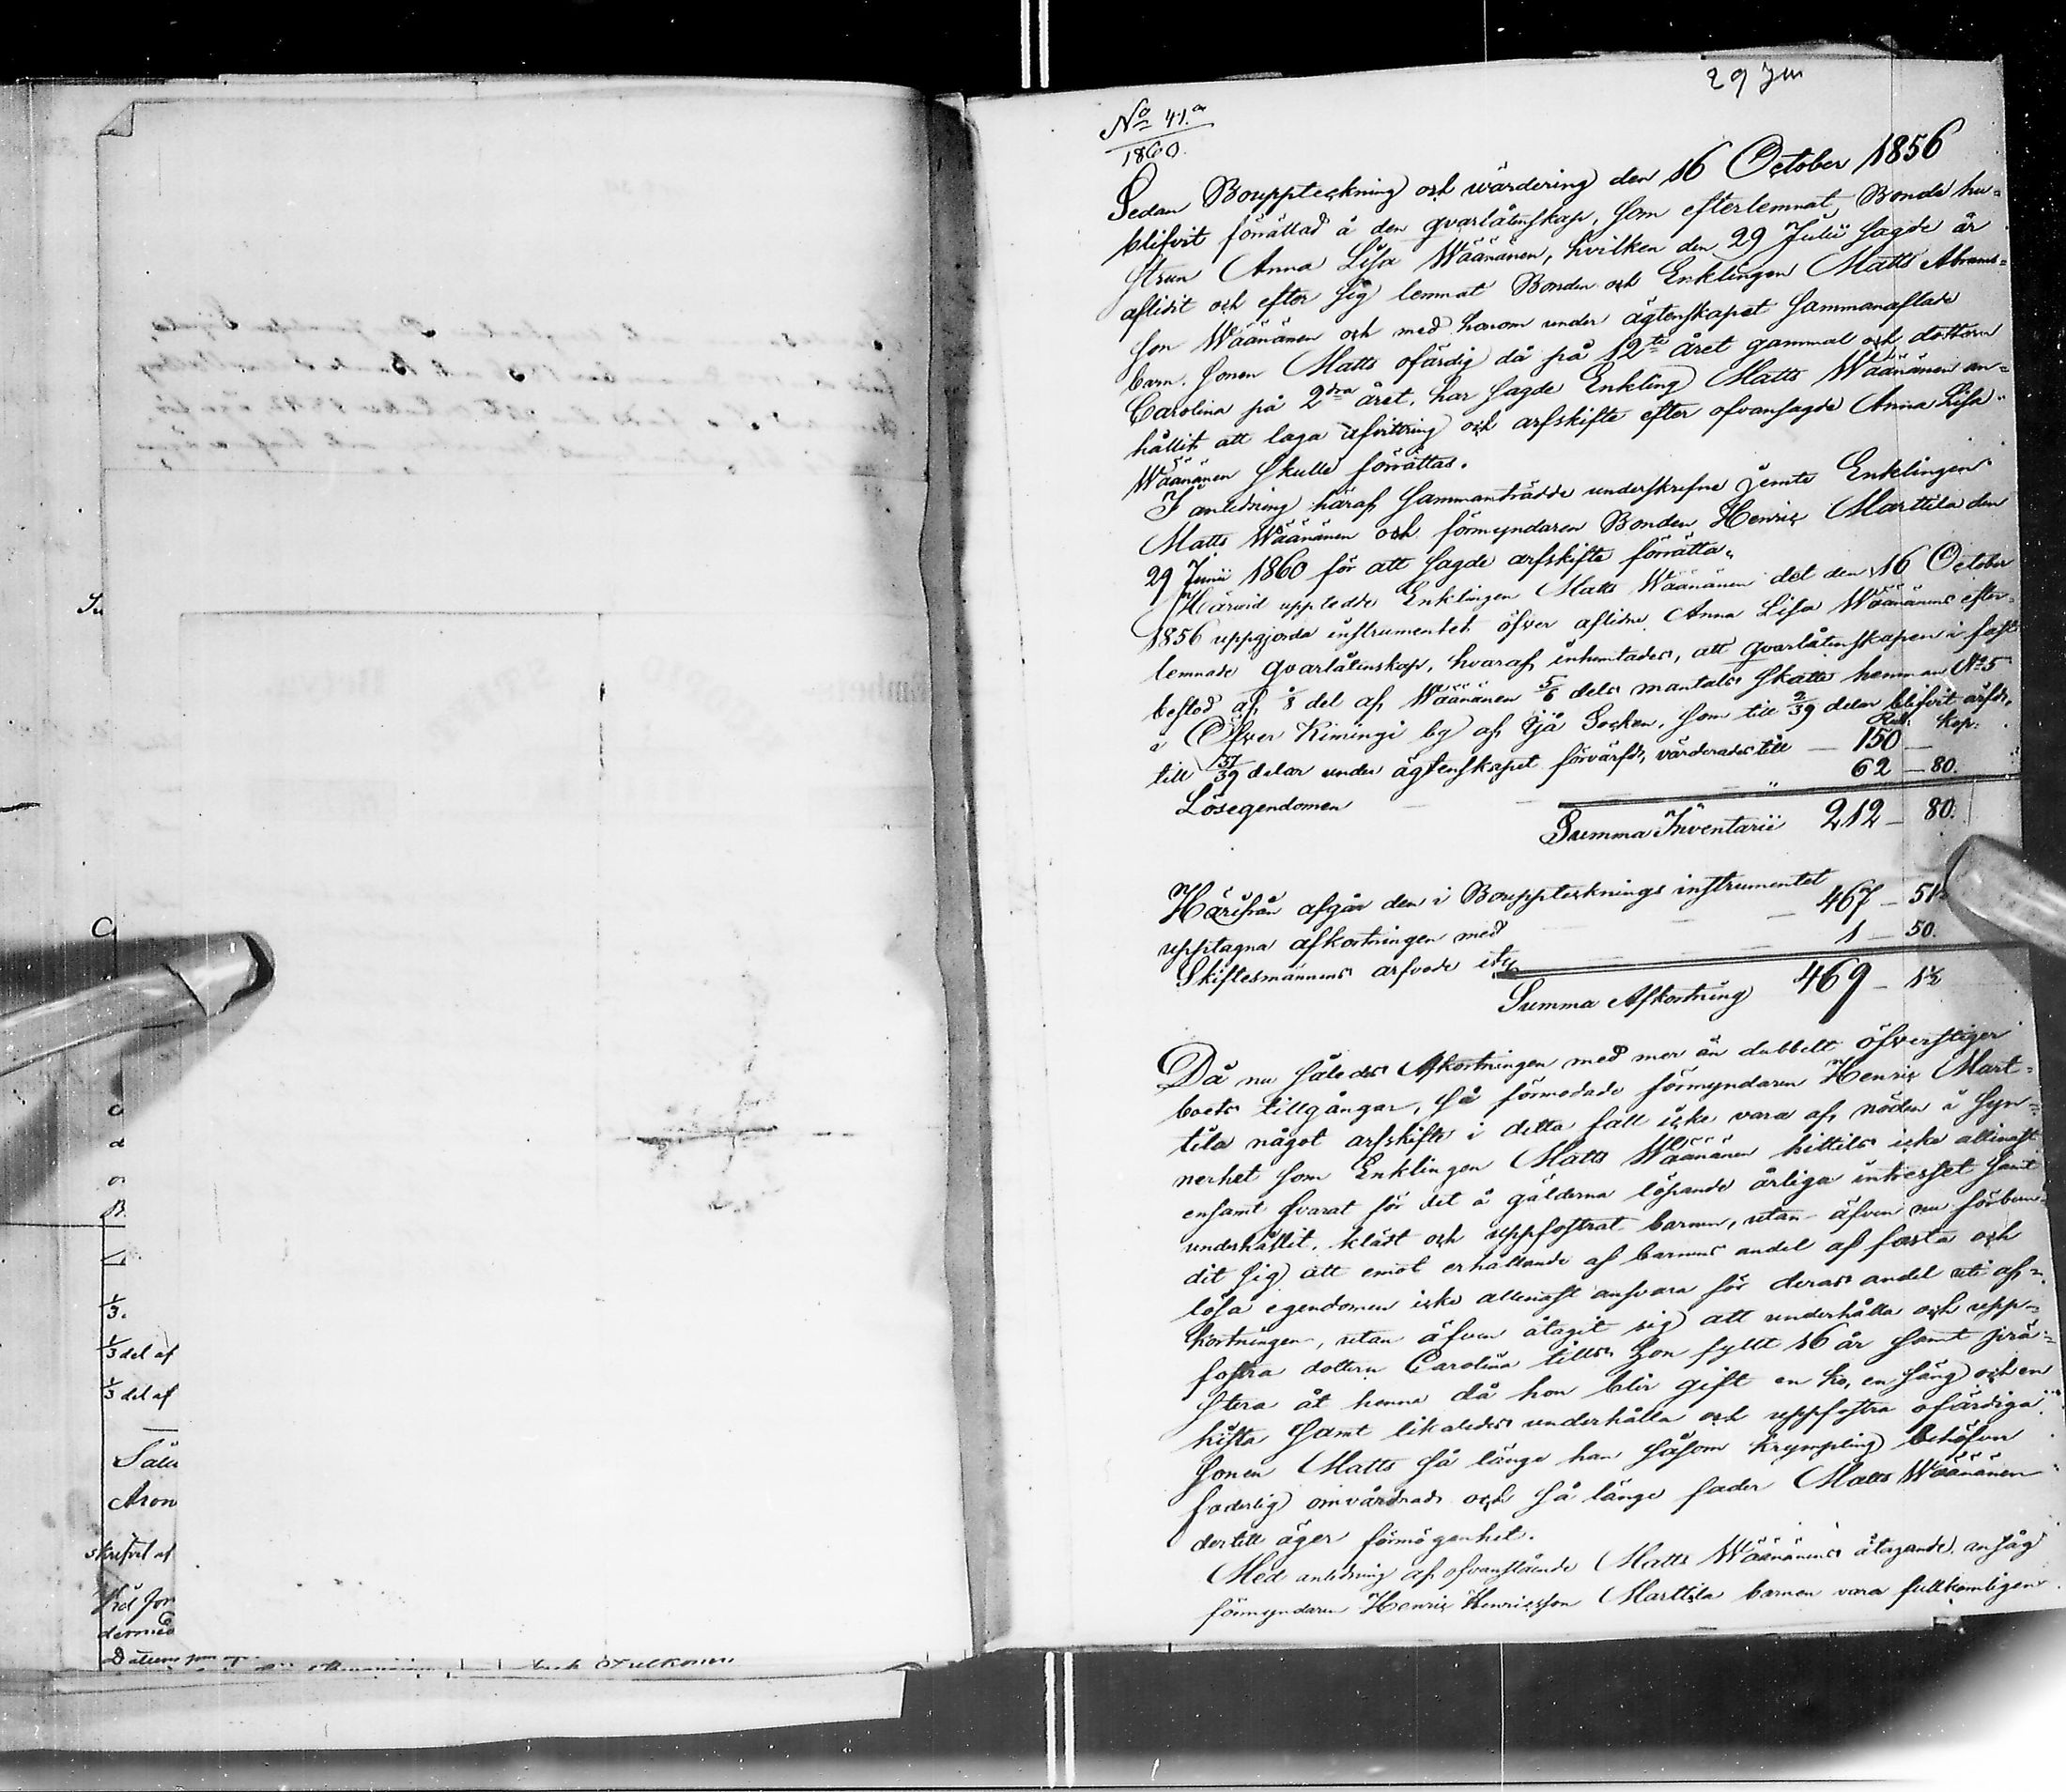 29 Jun
No 41.a
1860.
Sedan Bouppteckning och wärdering den 16 October 1856
blifvit förrättad å den qvarlåtenskap, som efterlemnat Bonde hu=
strun Anna Lisa Wäänänen, hvilken den 29 Julii sagde år
aflidit och efter sig lemnat Bonden och Enklingen Matts Abrams=
son Wäänänen och med honom under ägtenskapet sammanaflade
barn. sonen Matts ofärdig då på 12te året gammal och dottern
Carolina på 2dra året, har sagde Enkling Matts Wäänänen an=
hållit att laga afvittring och arfskifte efter ofvansagde Anna Lisa
Wäänänen skulle förrättas.
I anledning häraf sammanträdde underskrefne jemte Enklingen
Matts Wäänänen och förmyndaren Bonden Henric Marttila den
29 Junii 1860 för att sagde arfskifte förrätta.
Härvid uppledde Enklingen Matts Wäänänen det den 16 October
1856 uppgjorda instrumentet öfver aflidne Anna Lisa Wäänänens efter=
lemnade qvarlåtenskap, hvaraf inhemtades, att qvarlåtenskapen i fast
bestod af del af Wäänänen 5/6 dels mantals skatte hemman No 5
i Öfver Kimingi by af Socken, som till 2/39 delar blifvit ärfdt,
till 37/39 delar under ägtenskapet förvärfdt, värderades till — 150 —
Rub. Kop.
Lösegendomen — — " 62 — 80.
Summa Inventarii 212 — 80.
Härifrån afgår den i Bouppteknings instrumentet
upptagna afkortningen med — — 467 — 51
Skiftesmännens arfvode — — 1 — 50.
Summa Afkortning 469 — 1½
Då nu således Afkortningen med mer än dubbelt öfverstiger
boets tillgångar, så förmodade förmyndaren Henric Mart=
tila något arfskifte i detta fall icke vara af nöden i syn=
nerhet som Enklingen Matts Wäänänen hittils icke allenast
ensamt svarat för det å gälderna löpande årliga intresset samt
underhållit, klädt och uppfostrat barnen, utan äfven nu förbun=
dit sig att emot erhållande af barnens andel af fasta och
lösa egendomen icke allenast ansvara för deras andel uti af=
kortningen, utan äfven åtagit sig att underhålla och upp=
fostra dottern Carolina tills hon fyllt 16 år samt prä=
stera åt henne då hon blir gift en ko, en säng och en
kista samt likaledes underhålla och uppfostra ofärdiga
sonen Matts så länge han såsom krympling behöfver
faderlig omvårdnad och så länge fader Matts Wäänänen
dertill äger förmögenhet.
Med anledning af ofvanstående Matts Wäänänens åtagande, ansåg
förmyndaren Henric Henricsson Marttila barnen vara fullkomligen
1/3 del af
1/3 del af
Aron
skrefvet af